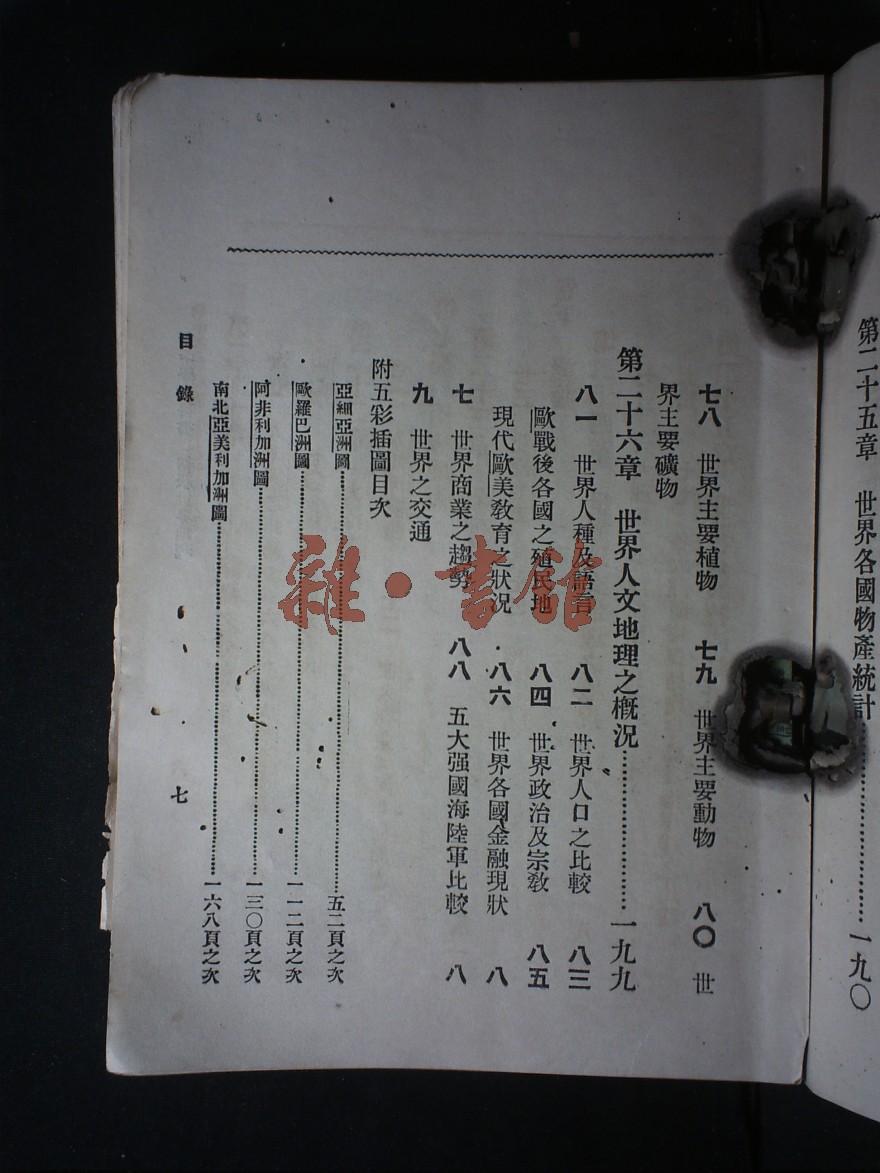 第二十五章　世界各國物產統計……………一九〇
七八　世界主要植物　七九　世界主要動物　八〇　世
界主要礦物
第二十六章　世界人文地理之概況……………一九九
八一　世界人種及語言　八二　世界人口之比較　八三
歐戰後各國之殖民地　八四　世界政治及宗敎　八五
現代歐美敎育之狀況　八六　世界各國金融現狀　八
七　世界商業之趨勢　八八　五大强國海陸軍比較　八
九　世界之交通
附五彩插圖目次
亞細亞洲圖……………五二頁之次
歐羅巴洲圖……………一一二頁之次
阿非利加洲圖……………一三〇頁之次
南北亞美利加洲圖……………一六八頁之次
目錄
七
雜·書館